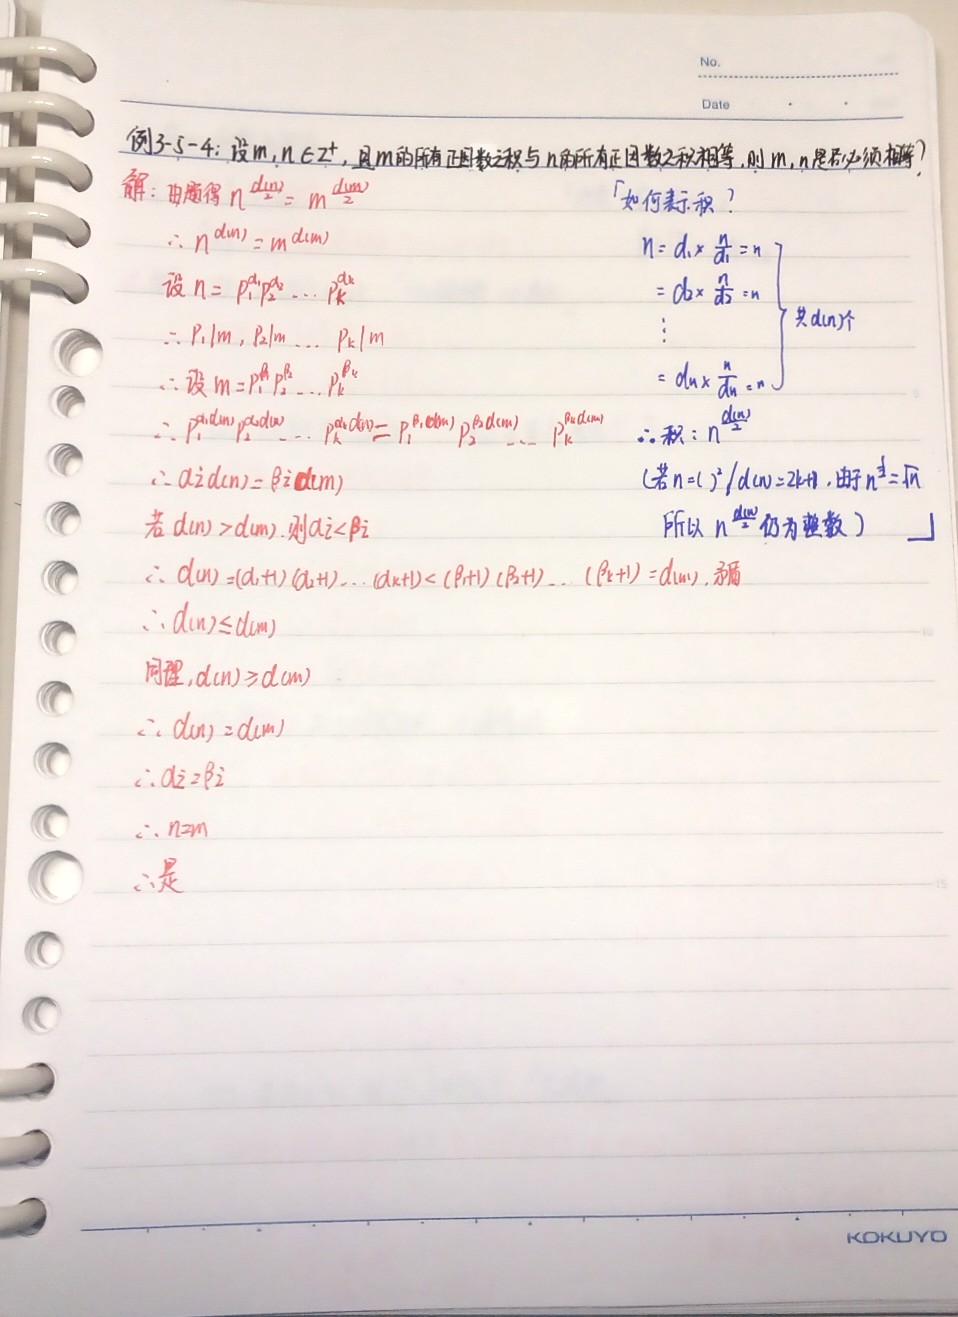 No.
Date
例3-5-4: 设m,n∈Z⁺,且m的所有正因数之积与n的所有正因数之积相等,则m,n是否必须相等?
解: 由题得 n^{d(n)/2} = m^{d(m)/2}
∴ n^{d(n)} = m^{d(m)}
设 n = p₁^{α₁}p₂^{α₂} … p_k^{α_k}
∴ p₁|m, p₂|m … p_k|m
∴ 设 m = p₁^{β₁}p₂^{β₂} … p_k^{β_k}
∴ p₁^{α₁d(n)}p₂^{α₂d(n)} … p_k^{α_kd(n)} = p₁^{β₁d(m)} p₂^{β₂d(m)} … p_k^{β_kd(m)}
∴ αi d(n) = βi d(m)
若 d(n) > d(m), 则αi < βi
∴ d(n) = (α₁+1)(α₂+1) … (α_k+1) < (β₁+1)(β₂+1) … (β_k+1) = d(m), 矛盾
∴ d(n) ≤ d(m)
同理, d(n) ≥ d(m)
∴ d(n) = d(m)
∴ αi = βi
∴ n=m
∴ 是
「如何表示积?
n = d₁ × n/d₁ = n
= d₂ × n/d₂ = n
⋮
= dn × n/dn = n
共d(n)个
∴ 积: n^{d(n)/2}
(若n=( )²/d(n)=2k+1, 由于n^{1/2}=√n
所以 n^{d(n)/2} 仍为整数) 」
KOKUYO